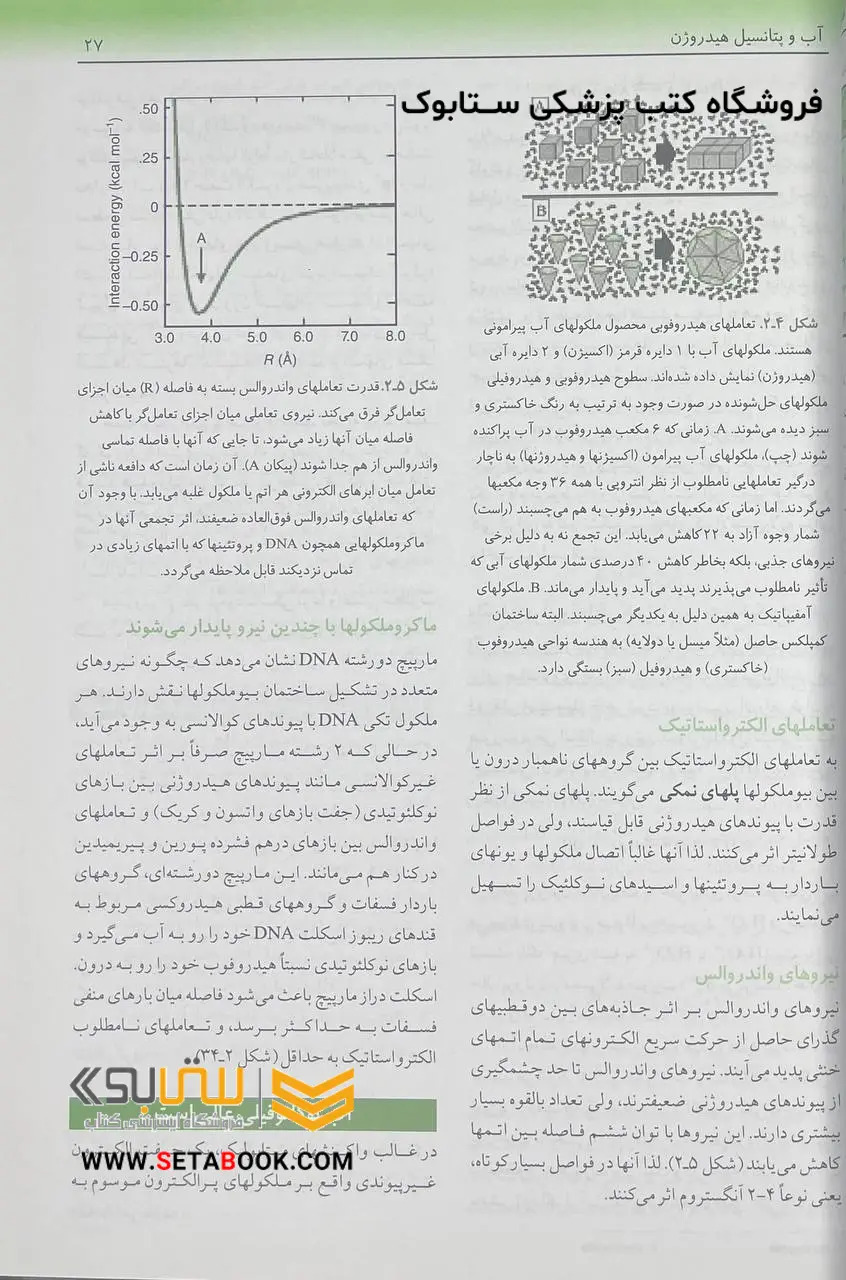 آب و پتانسیل هیدروژن
۲۷
فروشگاه کتب پزشکی ستابوک
A
B
شکل ۴ـ۲. تعاملهای هیدروفوبی محصول ملکولهای آب پیرامونی
هستند. ملکولهای آب با ۱ دایره قرمز (اکسیژن) و ۲ دایره آبی
(هیدروژن) نمایش داده شده‌اند. سطوح هیدروفوبی و هیدروفیلی
ملکولهای حل‌شونده در صورت وجود به ترتیب به رنگ خاکستری و
سبز دیده می‌شوند. A. زمانی که ۶ مکعب هیدروفوب در آب پراکنده
شوند (چپ)، ملکولهای آب پیرامون (اکسیژنها و هیدروژنها) به ناچار
درگیر تعاملهایی نامطلوب از نظر انتروپی با همه ۳۶ وجه مکعبها
می‌گردند. اما زمانی که مکعبهای هیدروفوب به هم می‌چسبند (راست)
شمار وجوه آزاد به ۲۲ کاهش می‌یابد. این تجمع نه به دلیل برخی
نیروهای جذبی، بلکه بخاطر کاهش ۴۰ درصدی شمار ملکولهای آبی که
تأثیر نامطلوب می‌پذیرند پدید می‌آید و پایدار می‌ماند. B. ملکولهای
آمفیپاتیک به همین دلیل به یکدیگر می‌چسبند. البته ساختمان
کمپلکس حاصل (مثلاً میسل یا دولایه) به هندسه نواحی هیدروفوب
(خاکستری) و هیدروفیل (سبز) بستگی دارد.
تعاملهای الکترواستاتیک
به تعاملهای الکترواستاتیک بین گروههای ناهمبار درون یا
بین بیوملکولها پلهای نمکی می‌گویند. پلهای نمکی از نظر
قدرت با پیوندهای هیدروژنی قابل قیاسند، ولی در فواصل
طولانیتر اثر می‌کنند. لذا آنها غالباً اتصال ملکولها و یونهای
باردار به پروتئینها و اسیدهای نوکلئیک را تسهیل
می‌نمایند.
نیروهای واندروالس
نیروهای واندروالس بر اثر جاذبه‌های بین دوقطبیهای
گذرای حاصل از حرکت سریع الکترونهای تمام اتمهای
خنثی پدید می‌آیند. نیروهای واندروالس تا حد چشمگیری
از پیوندهای هیدروژنی ضعیفترند، ولی تعداد بالقوه بسیار
بیشتری دارند. این نیروها با توان ششم فاصله بین اتمها
کاهش می‌یابند (شکل ۵ـ۲). لذا آنها در فواصل بسیار کوتاه،
یعنی نوعاً ۴-۲ آنگستروم اثر می‌کنند.
Interaction energy (kcal mol⁻¹)
.50
.25
0
–0.25
–0.50
A
3.0 4.0 5.0 6.0 7.0 8.0
R (Å)
شکل ۵ـ۲. قدرت تعاملهای واندروالس بسته به فاصله (R) میان اجزای
تعامل‌گر فرق می‌کند. نیروی تعاملی میان اجزای تعامل‌گر با کاهش
فاصله میان آنها زیاد می‌شود، تا جایی که آنها با فاصله تماسی
واندروالس از هم جدا شوند (پیکان A). آن زمان است که دافعه ناشی از
تعامل میان ابرهای الکترونی هر اتم یا ملکول غلبه می‌یابد. با وجود آن
که تعاملهای واندروالس فوق‌العاده ضعیفند، اثر تجمعی آنها در
ماکروملکولهایی همچون DNA و پروتئینها که با اتمهای زیادی در
تماس نزدیکند قابل ملاحظه می‌گردد.
ماکروملکولها با چندین نیرو پایدار می‌شوند
مارپیچ دورشته DNA نشان می‌دهد که چگونه نیروهای
متعدد در تشکیل ساختمان بیوملکولها نقش دارند. هر
ملکول تکی DNA با پیوندهای کوالانسی به وجود می‌آید،
در حالی که ۲ رشته مارپیچ صرفاً بر اثر تعاملهای
غیرکوالانسی مانند پیوندهای هیدروژنی بین بازهای
نوکلئوتیدی (جفت بازهای واتسون و کریک) و تعاملهای
واندروالس بین بازهای درهم فشرده پورین و پیریمیدین
در کنار هم می‌مانند. این مارپیچ دورشته‌ای، گروههای
باردار فسفات و گروههای قطبی هیدروکسی مربوط به
قندهای ریبوز اسکلت DNA خود را رو به آب می‌گیرد و
بازهای نوکلئوتیدی نسبتاً هیدروفوب خود را رو به درون.
اسکلت دراز مارپیچ باعث می‌شود فاصله میان بارهای منفی
فسفات به حداکثر برسد، و تعاملهای نامطلوب
الکترواستاتیک به حداقل (شکل ۲ـ۳۴).
ستابوک
فروشگاه اینترنتی کتاب
WWW.SETABOOK.COM
در غالب واکنشهای متابولیک، یک جفت الکترون
غیرپیوندی واقع بر ملکولهای پرالکترون موسوم به